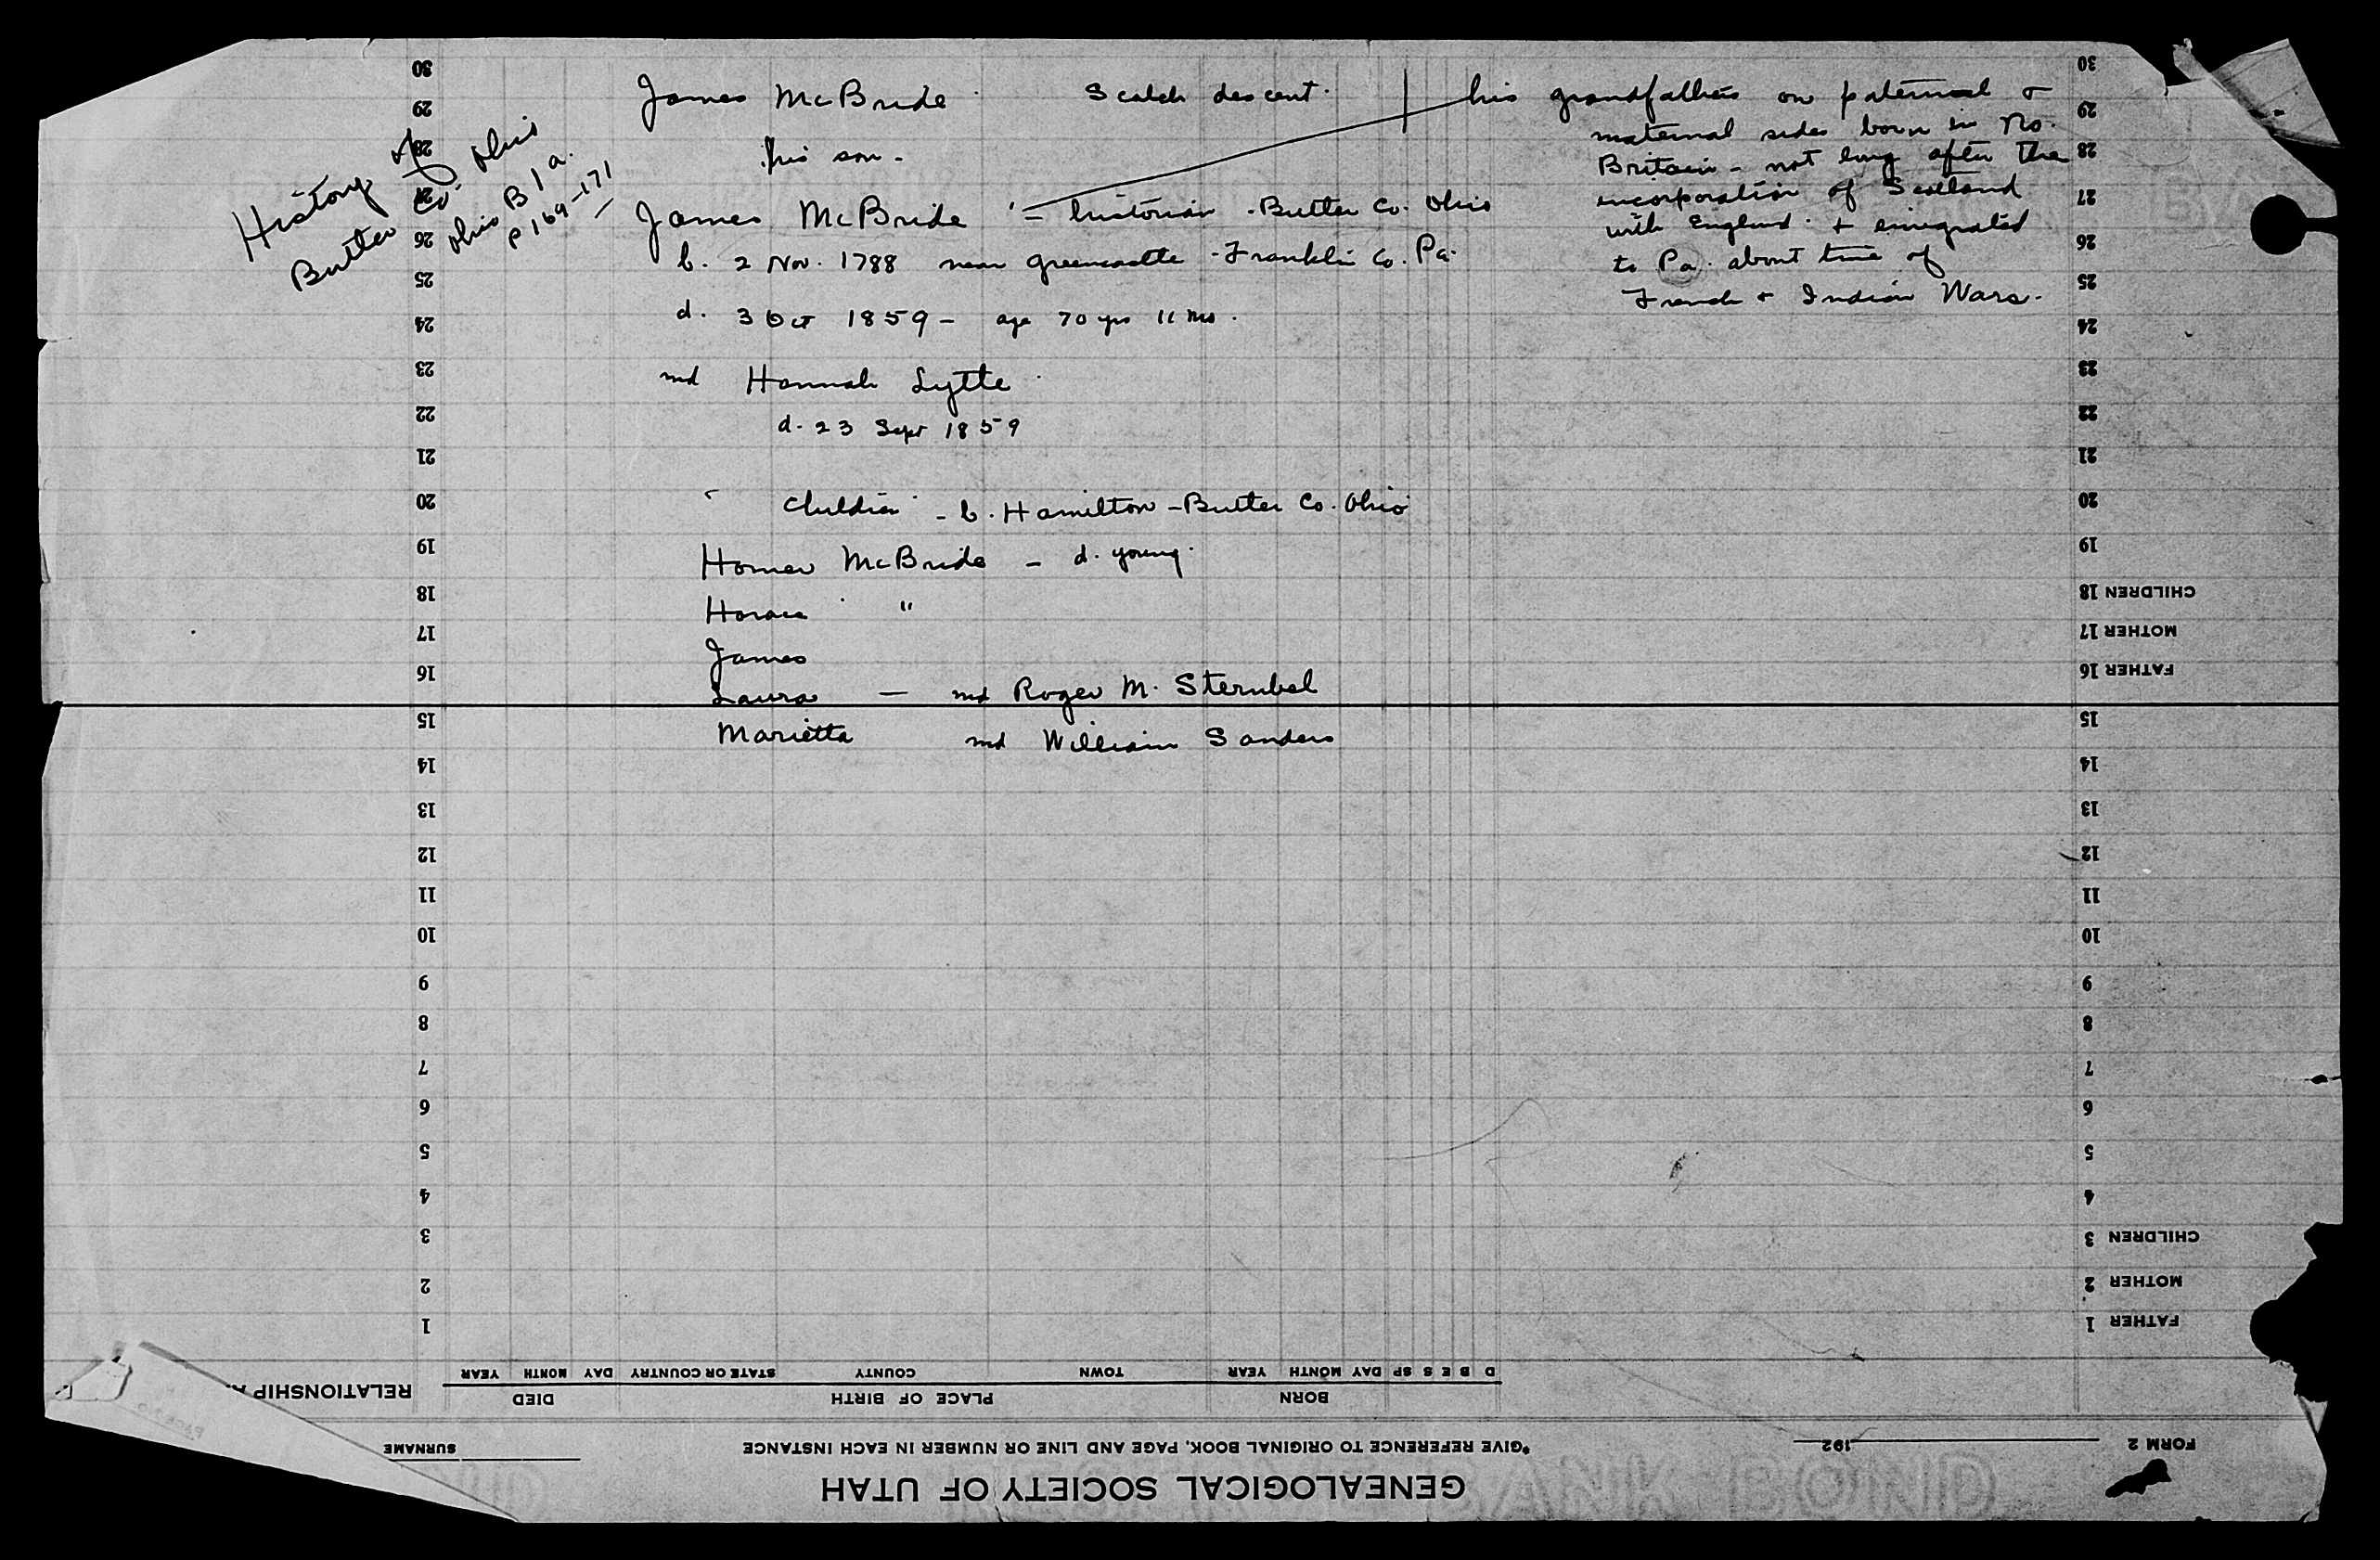 James McBride Scotch descent. his grandfathers on paternal &
maternal sides born in No.
Britain - not long after the
incorporation of Scotland
with England. & emigrated
to Pa. about time of
French & Indian Wars.
his son -
James McBride - historian - Butler Co. Ohio
b. 2 Nov. 1788 near Greencastle - Franklin Co. Pa.
d. 3 Oct 1859 - age 70 yrs 11 mo.
md Hannah Lytle
d. 23 Sept 1859
History of
Butler Co. Ohio
Ohio B 1 a.
P 169-171
Children - b. Hamilton - Butler Co. Ohio
Homer McBride - d. young.
Horace "
James
Laura - md Roger M. Sternbel
Marietta md William Sanders
30
29
28
27
26
25
24
23
22
21
20
19
18
17
16
15
14
13
12
11
10
9
8
7
6
5
4
3
2
1
30
29
28
27
26
25
24
23
22
21
20
19
CHILDREN 18
MOTHER 17
FATHER 16
15
14
13
12
11
10
9
8
7
6
5
4
CHILDREN 3
MOTHER 2
FATHER 1
D B E S SP DAY MONTH YEAR TOWN COUNTY STATE OR COUNTRY DAY MONTH YEAR
BORN PLACE OF BIRTH DIED RELATIONSHIP
FORM 2 192 *GIVE REFERENCE TO ORIGINAL BOOK, PAGE AND LINE OR NUMBER IN EACH INSTANCE SURNAME
GENEALOGICAL SOCIETY OF UTAH